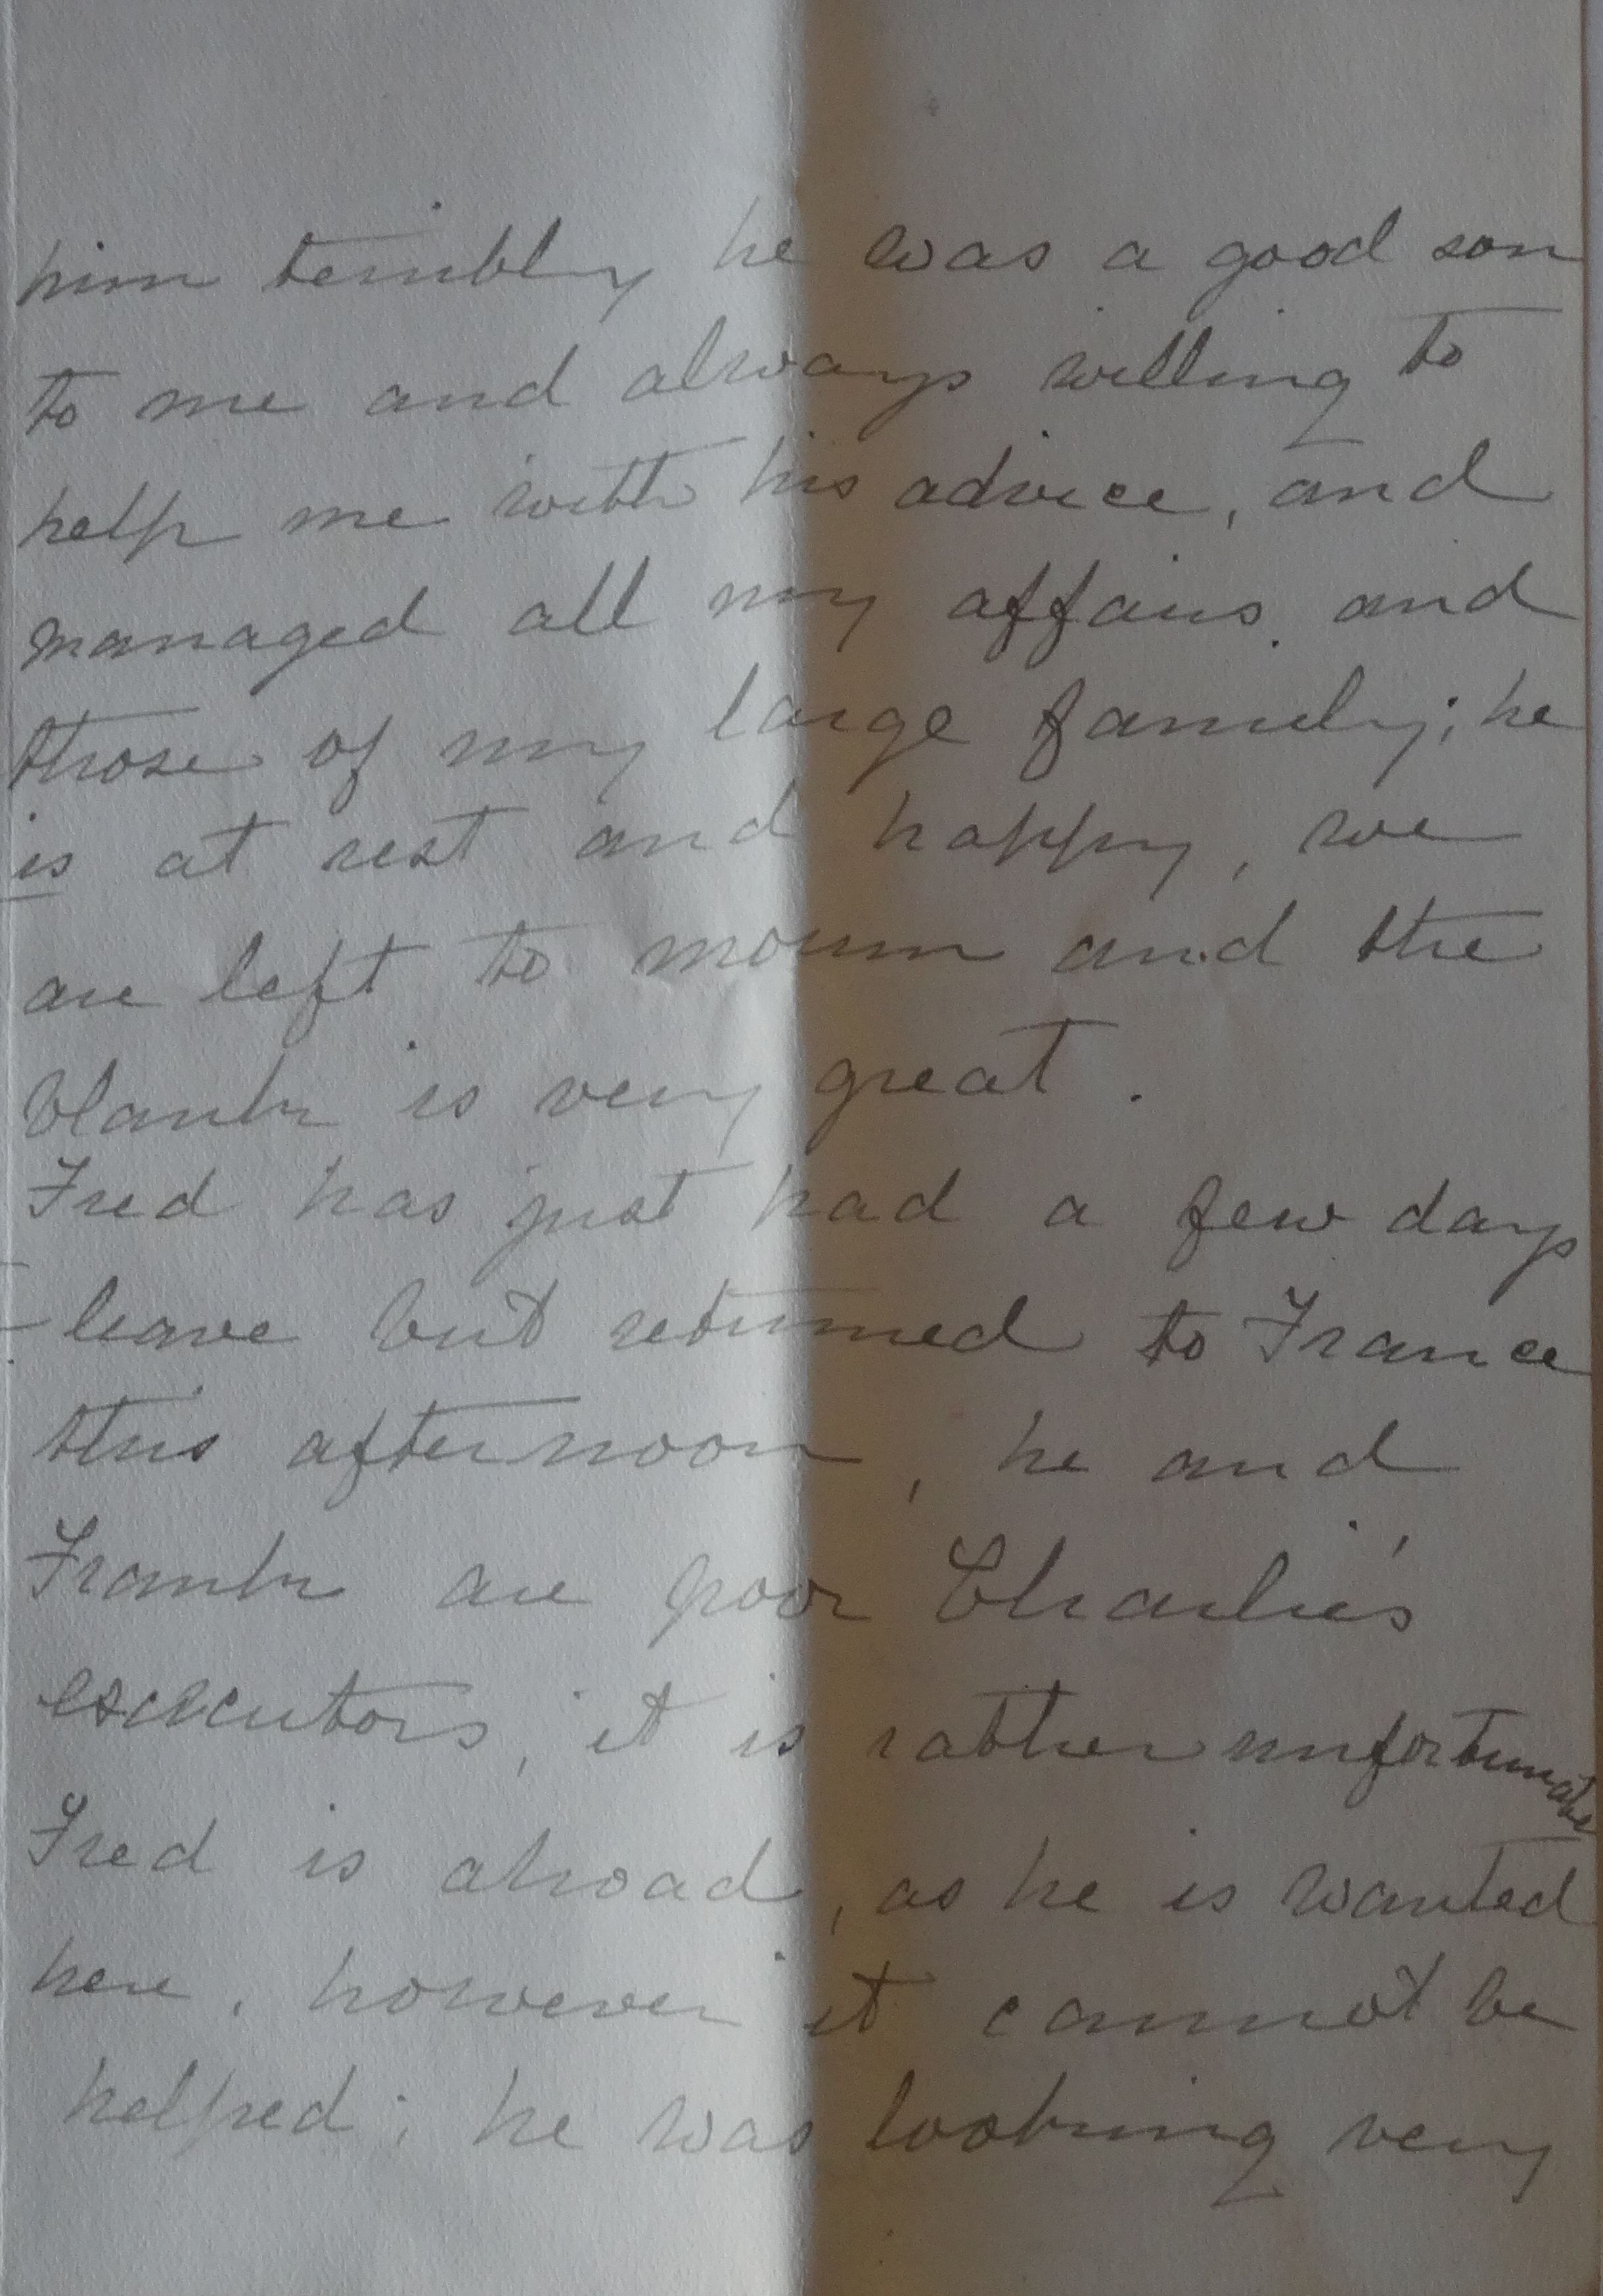 him terribly he was a good son
to me and always willing to
help me with his advice, and
managed all my affairs and
those of my large family; he
is at rest and happy, we
are left to mourn and the
blank is very great.
Fred has just had a few days
leave but returned to France
this afternoon, he and
Frank are poor Charlie's
executors, it is rather unfortunate
Fred is abroad, as he is wanted
here, however it cannot be
helped; he was looking very